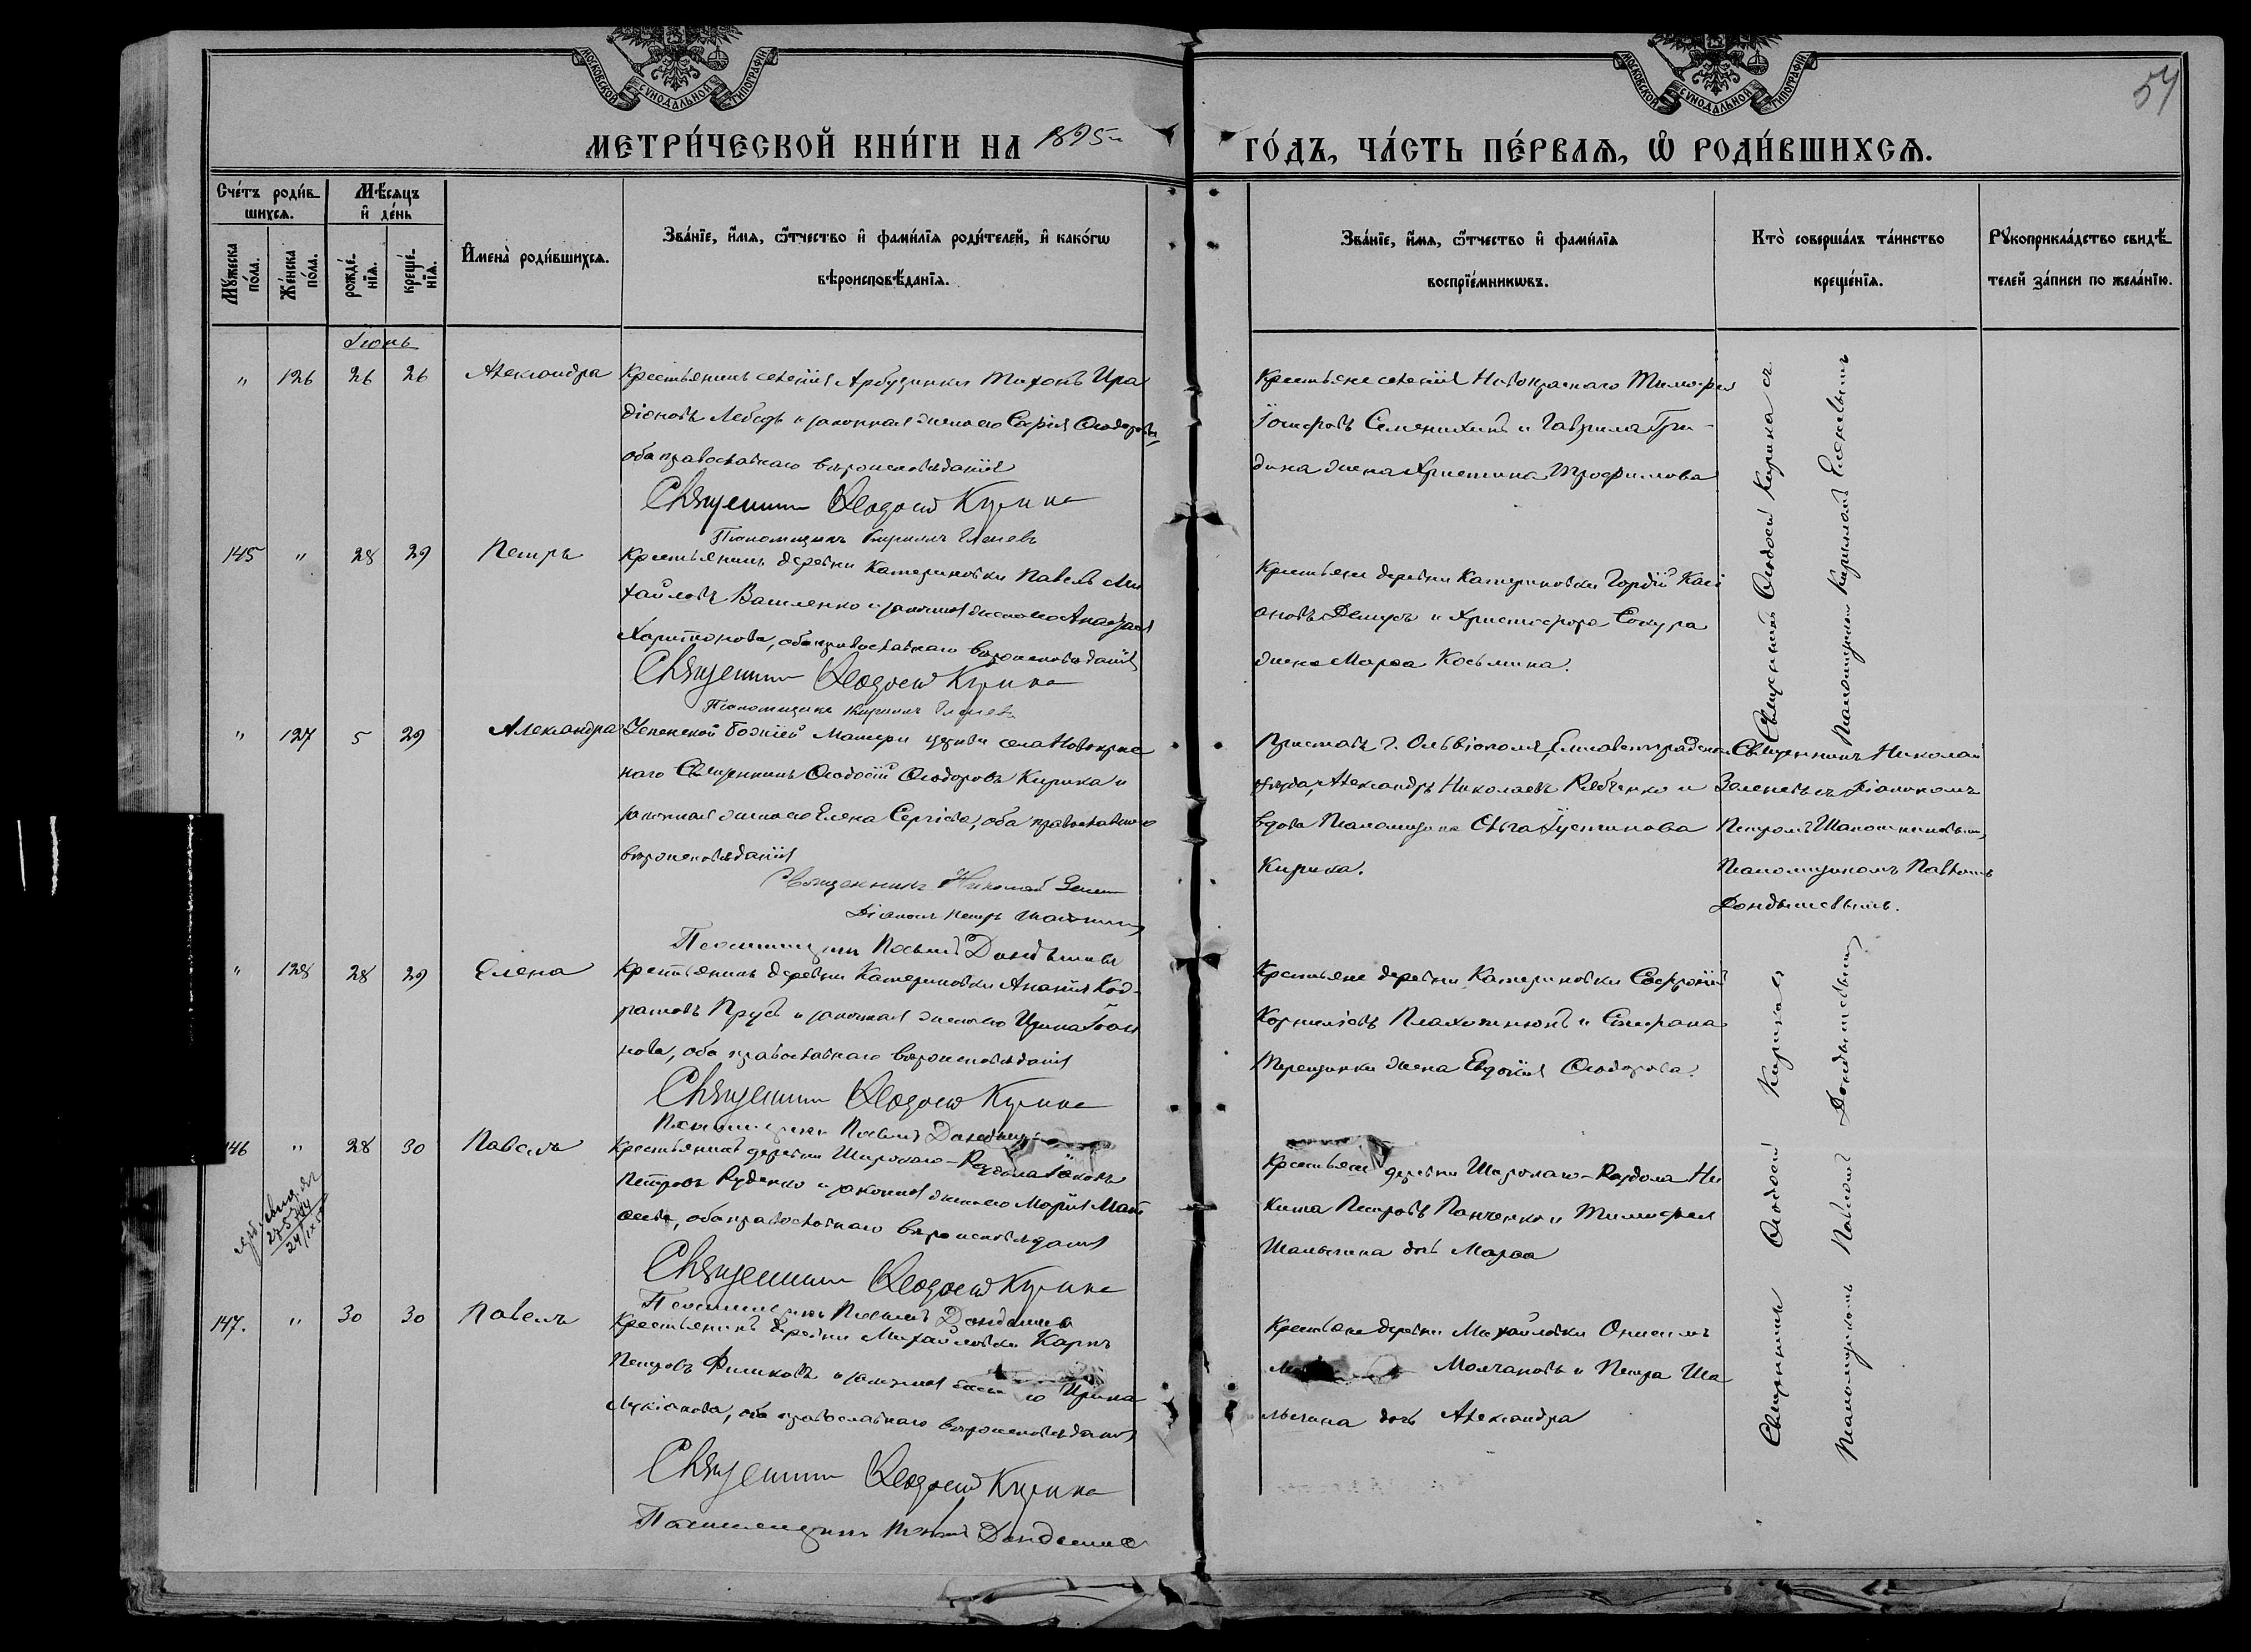 МОСКОВСКОЙ СѴНОДАЛЬНОЙ ТИПОГРАФІИ
МОСКОВСКОЙ СѴНОДАЛЬНОЙ ТИПОГРАФІИ
54
МЕТРИ́ЧЕСКОЙ КНИ́ГИ НА 1895 ГО́ДЪ, ЧА́СТЬ ПЕ́РВАѦ, Ѡ҆ РОДИ́ВШИХСѦ.
Сче́тъ роди́вшихсѧ.
Мꙋ́жеска по́ла.
Же́нска по́ла.
Мѣ́сѧцъ и҆ де́нь
рожде́нїѧ.
креще́нїѧ.
И҆мена̀ роди́вшихсѧ.
Зва́нїе, и҆́мѧ, ѻ҆́тчество и҆ фами́лїѧ роди́телей, и҆ како́гѡ
вѣроисповѣ́данїѧ.
Зва́нїе, и҆́мѧ, ѻ҆́тчество и҆ фами́лїѧ
воспрїе́мникѡвъ.
Кто̀ соверша́лъ та́инство
креще́нїѧ.
Рꙋкоприкла́дство свидѣ́телей за́писи по жела́нїю.
Іюнь
" 126 26 26 Александра
Крестьянинъ селенія Арбузинки Тихонъ Ира
діоновъ Лебедь и законная жена его Софія Ѳеодорова,
оба православнаго вѣроисповѣданія
Священникъ Ѳеодосій Кирика
Псаломщикъ Кириллъ
Крестьяне селенія Новокраснаго Тимофей
Іосифовъ Семенихинъ и Гавріила Гри-
дина жена Христина Трофимова
Священникъ Ѳеодосій Кирика съ
Псаломщикомъ Кирилломъ
145 " 28 29 Петръ
Крестьянинъ деревни Катериновки Павелъ Ми
хайловъ Василенко и законная жена его
Харитонова, оба православнаго вѣроисповѣданія
Священникъ Ѳеодосій Кирика
Псаломщикъ Кириллъ
Крестьяне деревни Катериновки Гордій Касі
ановъ и Христофора Сокура
жена Марѳа Косьмина.
" 127 5 29 Александра
Успенской Божіей Матери церкви села Новокрас
наго Священникъ Ѳеодосій Ѳеодоровъ Кирика и
законная жена его Елена Сергіева, оба православнаго
вѣроисповѣданія
Священникъ Николай
Діаконъ Петръ
Псаломщикъ Павелъ Дондышевъ
Приставъ г. Ольвіополя, Елисаветградскаго
уѣзда, Александръ Николаевъ Рябченко и
вдова Псаломщика Ольга Іустинова
Кирика.
Священникъ Николай
Зеленевъ съ Діакономъ
Петромъ
Псаломщикомъ Павломъ
Дондышевымъ.
" 128 28 29 Елена
Крестьянинъ деревни Катериновки Ананія Код-
ратовъ Прусъ и законная жена его Ирина Іоан
нова, оба православнаго вѣроисповѣданія
Священникъ Ѳеодосій Кирика
Псаломщикъ Павелъ Дондышевъ
Крестьяне деревни Катериновки Софроній
Корниліевъ и Стефана
Терещенки жена Евдокія Ѳеодорова.
Священникъ Ѳеодосій Кирика съ
Псаломщикомъ Павломъ Дондышевымъ
146 " 28 30 Павелъ
Крестьянинъ деревни Широкаго-Раздола Іаковъ
Петровъ Руденко и законная жена его Марія Мат
ѳеева, оба православнаго вѣроисповѣданія
Священникъ Ѳеодосій Кирика
Псаломщикъ Павелъ Дондышевъ
Крестьяне деревни Широкаго-Раздола Ни
кита Петровъ Панченко и Тимофея
Шалыгина дочь Марѳа
147. " 30 30 Павелъ
Крестьянинъ деревни Михайловки Карпъ
Петровъ Филиковъ и законная жена его Ирина
Лукіанова, оба православнаго вѣроисповѣданія
Священникъ Ѳеодосій Кирика
Псаломщикъ Павелъ Дондышевъ
Крестьяне деревни Михайловки Онисимъ
Молчановъ и Петра Ша
лыгина дочь Александра